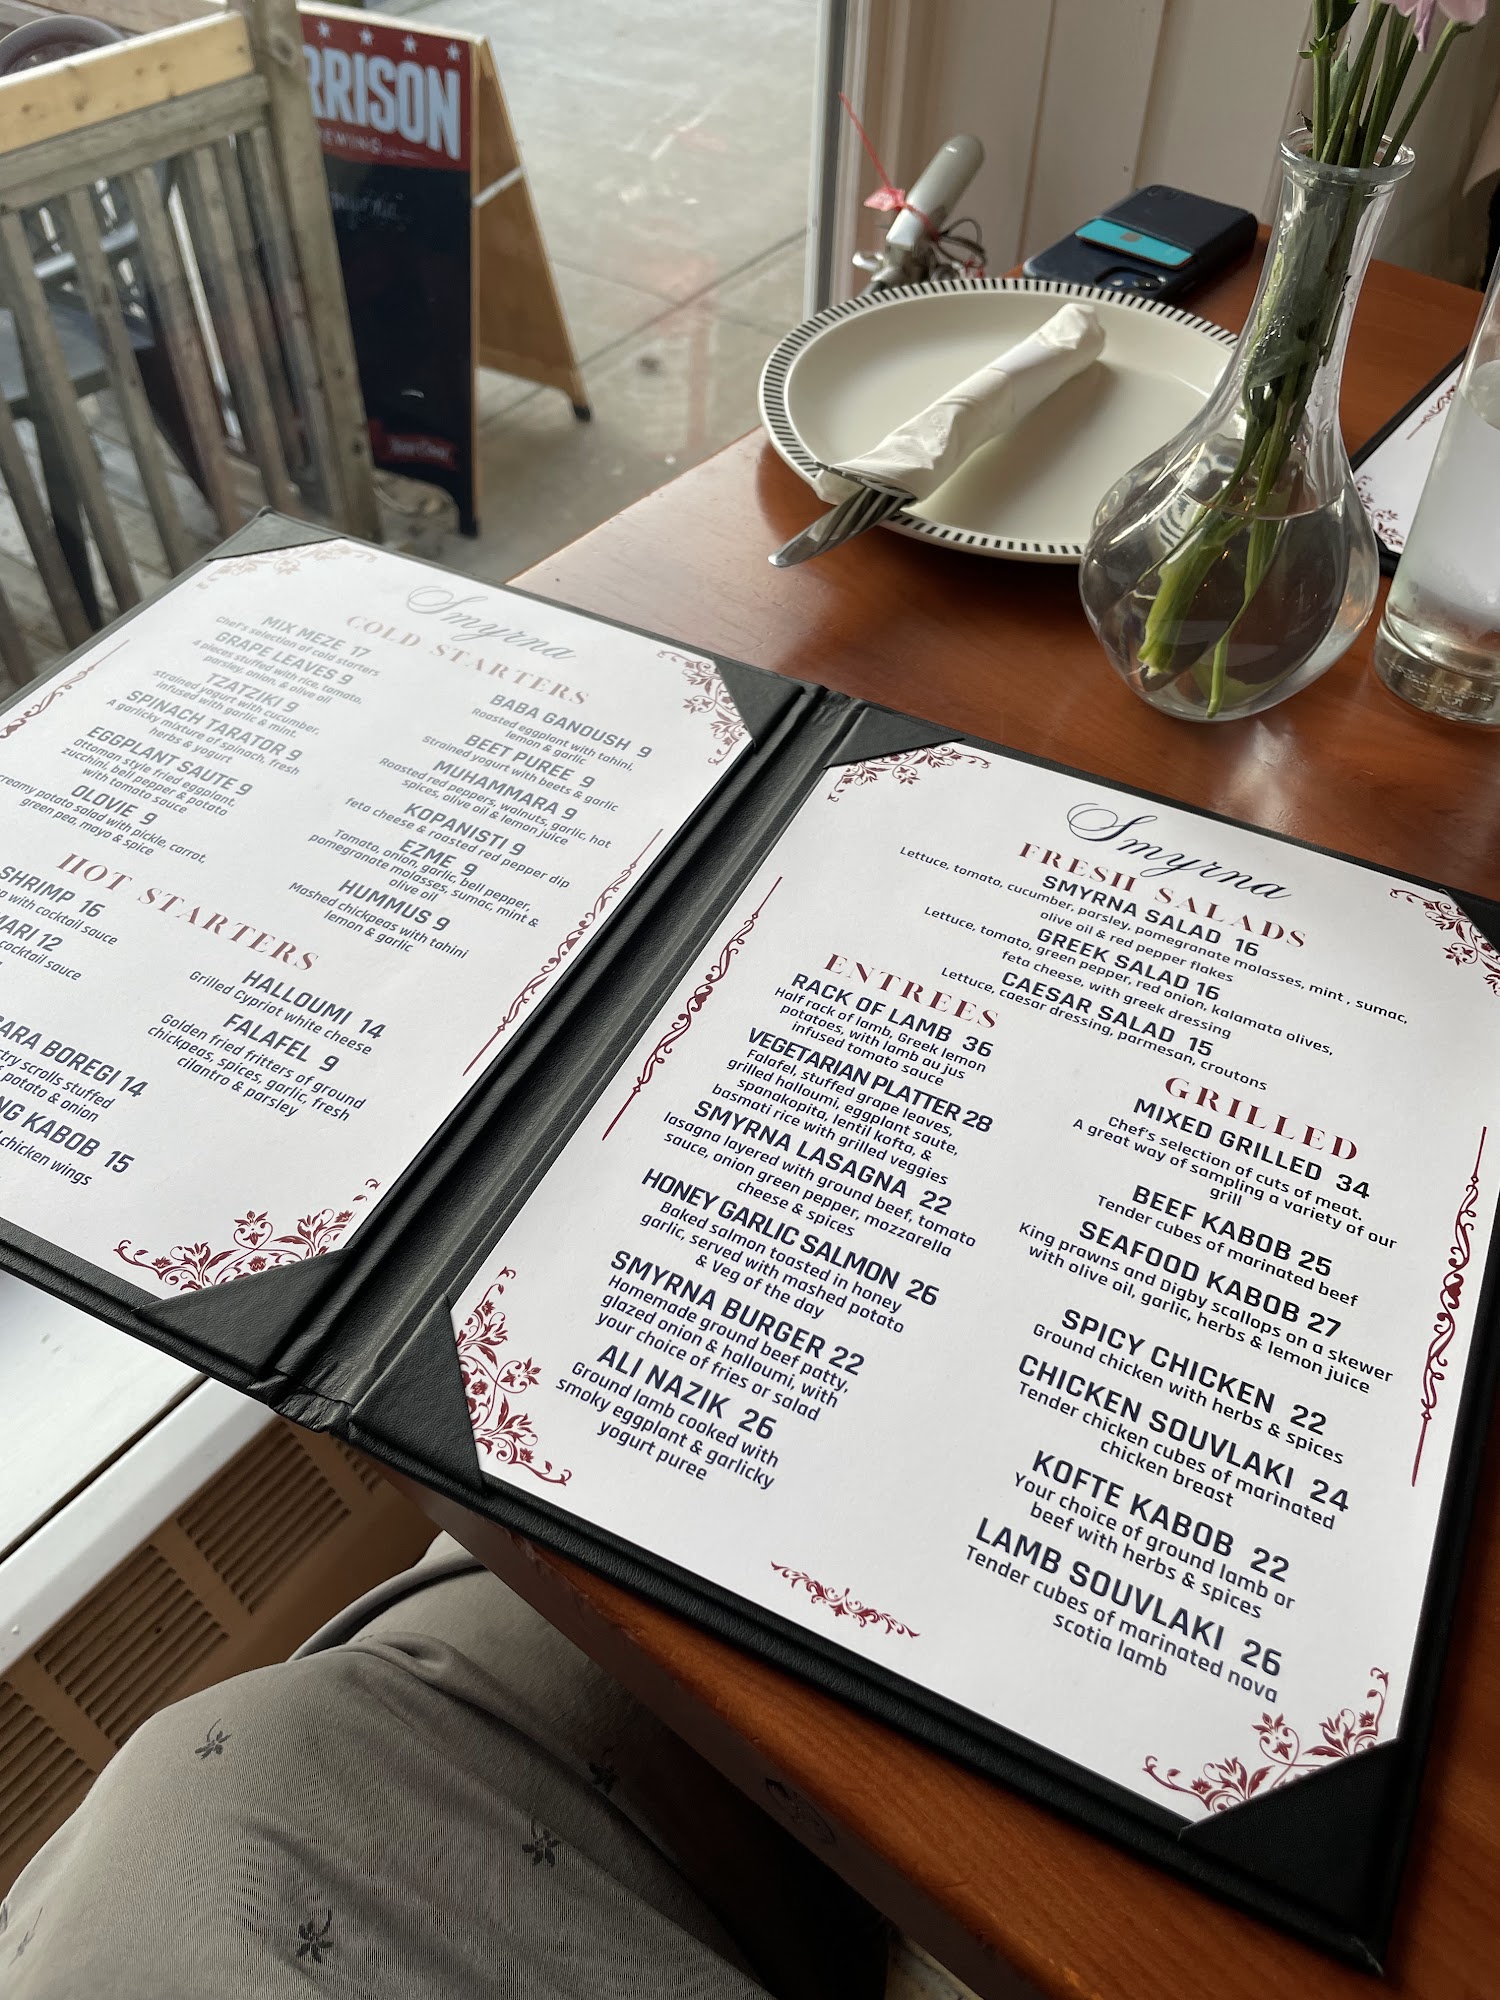 RRISON
Smyrna
COLD STARTERS
MIX MEZE 17
Chef's selection of cold starters
GRAPE LEAVES 9
4 pieces stuffed with rice, tomato,
parsley, onion, & olive oil
TZATZIKI 9
strained yogurt with cucumber,
infused with garlic & mint.
SPINACH TARATOR 9
A garlicky mixture of spinach, fresh
herbs & yogurt
EGGPLANT SAUTE 9
Ottoman style fried eggplant,
zucchini, bell pepper & potato
with tomato sauce
OLOVIE 9
creamy potato salad with pickle, carrot,
green pea, mayo & spice
BABA GANOUSH 9
Roasted eggplant with tahini,
lemon & garlic
BEET PUREE 9
Strained yogurt with beets & garlic
MUHAMMARA 9
Roasted red peppers, walnuts, garlic, hot
spices, olive oil & lemon juice
KOPANISTI 9
feta cheese & roasted red pepper dip
EZME 9
Tomato, onion, garlic, bell pepper,
pomegranate molasses, sumac, mint &
olive oil
HUMMUS 9
Mashed chickpeas with tahini
lemon & garlic
HOT STARTERS
SHRIMP 16
with cocktail sauce
MARI 12
cocktail sauce
GARA BOREGI 14
stry scrolls stuffed
potato & onion
NG KABOB 15
chicken wings
HALLOUMI 14
Grilled Cypriot white cheese
FALAFEL 9
Golden fried fritters of ground
chickpeas, spices, garlic, fresh
cilantro & parsley
Smyrna
FRESH SALADS
SMYRNA SALAD 16
Lettuce, tomato, cucumber, parsley, pomegranate molasses, mint , sumac,
olive oil & red pepper flakes
GREEK SALAD 16
Lettuce, tomato, green pepper, red onion, kalamata olives,
feta cheese, with greek dressing
CAESAR SALAD 15
Lettuce, caesar dressing, parmesan, croutons
ENTREES
RACK OF LAMB 36
Half rack of lamb, Greek lemon
potatoes, with lamb au jus
infused tomato sauce
VEGETARIAN PLATTER 28
Falafel, stuffed grape leaves,
grilled halloumi, eggplant saute,
spanakopita, lentil kofta, &
basmati rice with grilled veggies
SMYRNA LASAGNA 22
lasagna layered with ground beef, tomato
sauce, onion green pepper, mozzarella
cheese & spices
HONEY GARLIC SALMON 26
Baked salmon toasted in honey
garlic, served with mashed potato
& Veg of the day
SMYRNA BURGER 22
Homemade ground beef patty,
glazed onion & halloumi, with
your choice of fries or salad
ALI NAZIK 26
Ground lamb cooked with
smoky eggplant & garlicky
yogurt puree
GRILLED
MIXED GRILLED 34
Chef's selection of cuts of meat.
A great way of sampling a variety of our
grill
BEEF KABOB 25
Tender cubes of marinated beef
SEAFOOD KABOB 27
King prawns and Digby scallops on a skewer
with olive oil, garlic, herbs & lemon juice
SPICY CHICKEN 22
Ground chicken with herbs & spices
CHICKEN SOUVLAKI 24
Tender chicken cubes of marinated
chicken breast
KOFTE KABOB 22
Your choice of ground lamb or
beef with herbs & spices
LAMB SOUVLAKI 26
Tender cubes of marinated nova
scotia lamb